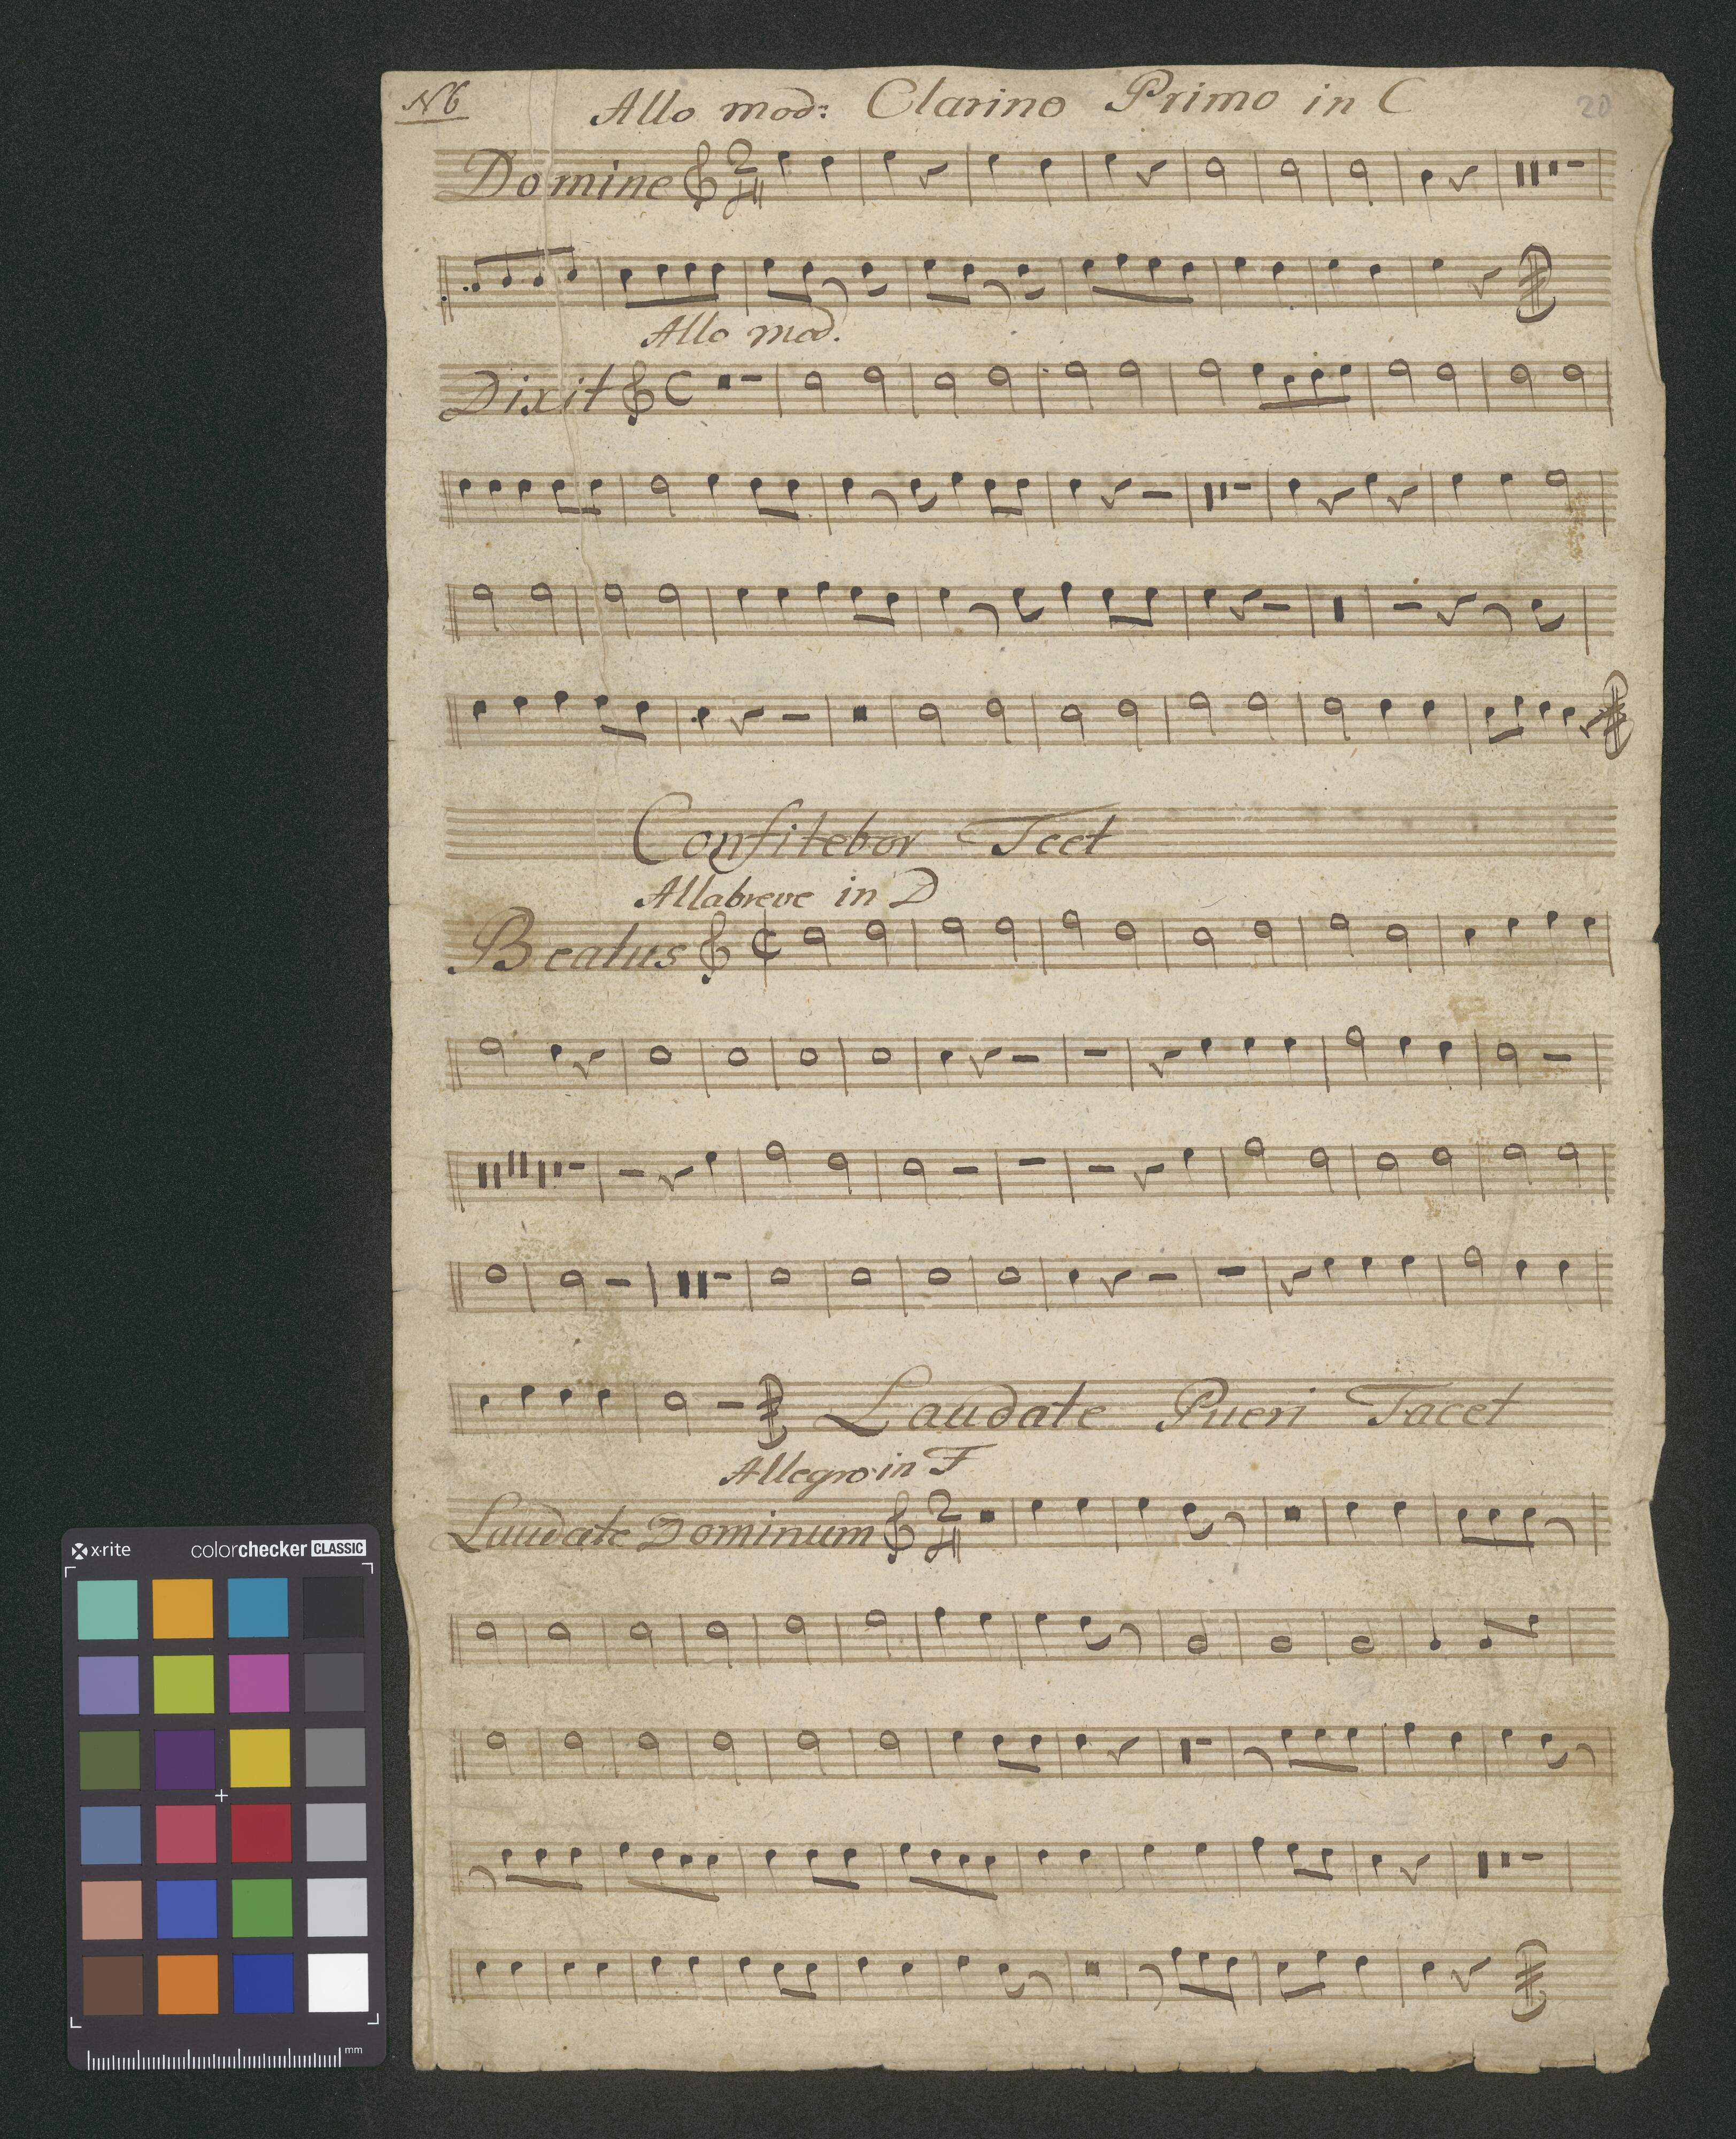 N6 Allo mod: Clarino Primo in C 20
Domine 2/4
Allo mod.
Dixit C
Confitebor Tcet
Allabreve in D
Beatus
Laudate Pueri Tacet
Allegro in F
Laudate Dominum 2/4
x·rite colorchecker CLASSIC
mm